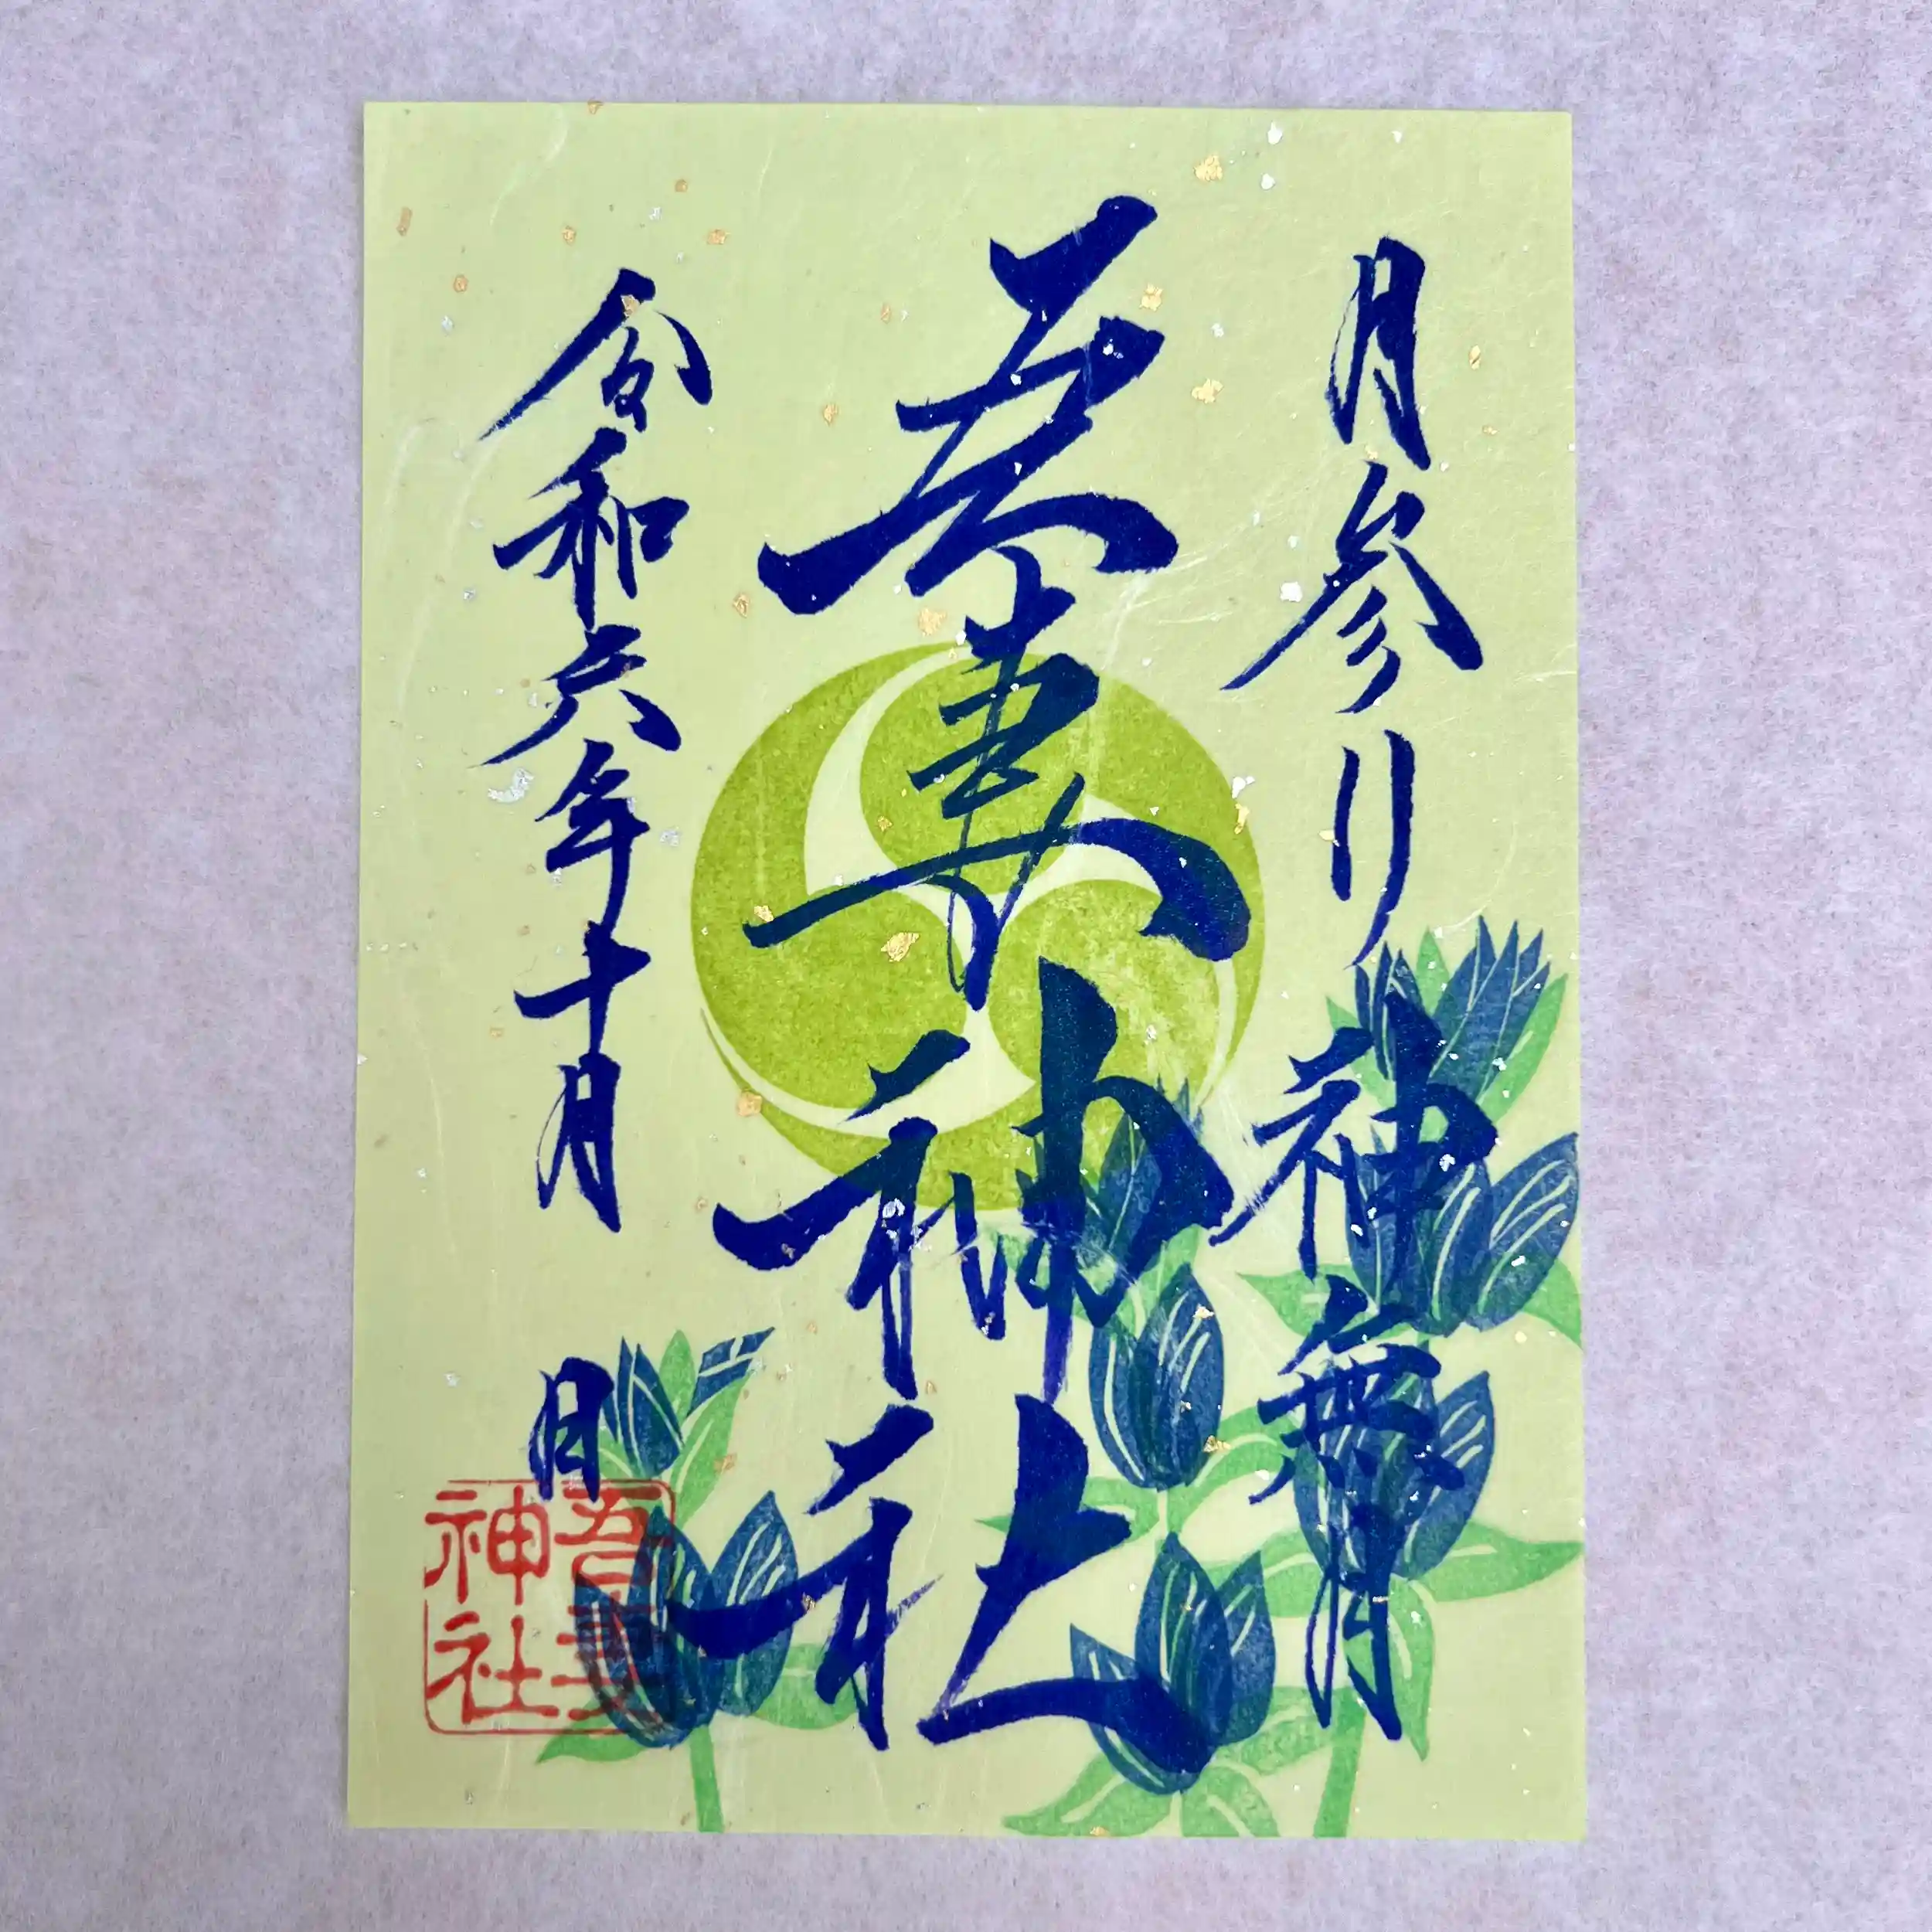 月参り 神無月
吾妻神社
令和六年十月 日
吾妻
神社